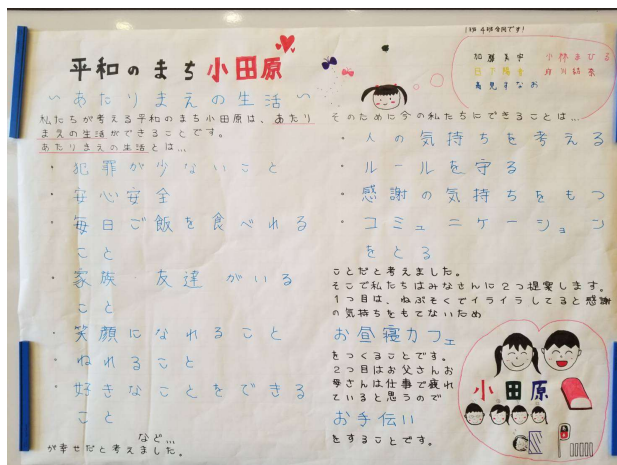 平和のまち小田原
〜あたりまえの生活〜
私たちが考える平和のまち小田原は、あたり
まえの生活ができることです。
あたりまえの生活とは…
・犯罪が少ないこと
・安心安全
・毎日ご飯を食べれる
こと
・家族・友達がいる
こと
・笑顔になれること
・ねれること
・好きなことをできる
こと
など…
が幸せだと考えました。
そのために今の私たちにできることは…
・人の気持ちを考える
・ルールを守る
・感謝の気持ちをもつ
・コミュニケーション
をとる
ことだと考えました。
そこで私たちはみなさんに2つ提案します。
1つ目は、ねぶそくでイライラしてると感謝
の気持ちをもてないため
お昼寝カフェ
をつくることです。
2つ目はお父さんお
母さんは仕事で疲れ
ていると思うので
お手伝い
をすることです。
小田原